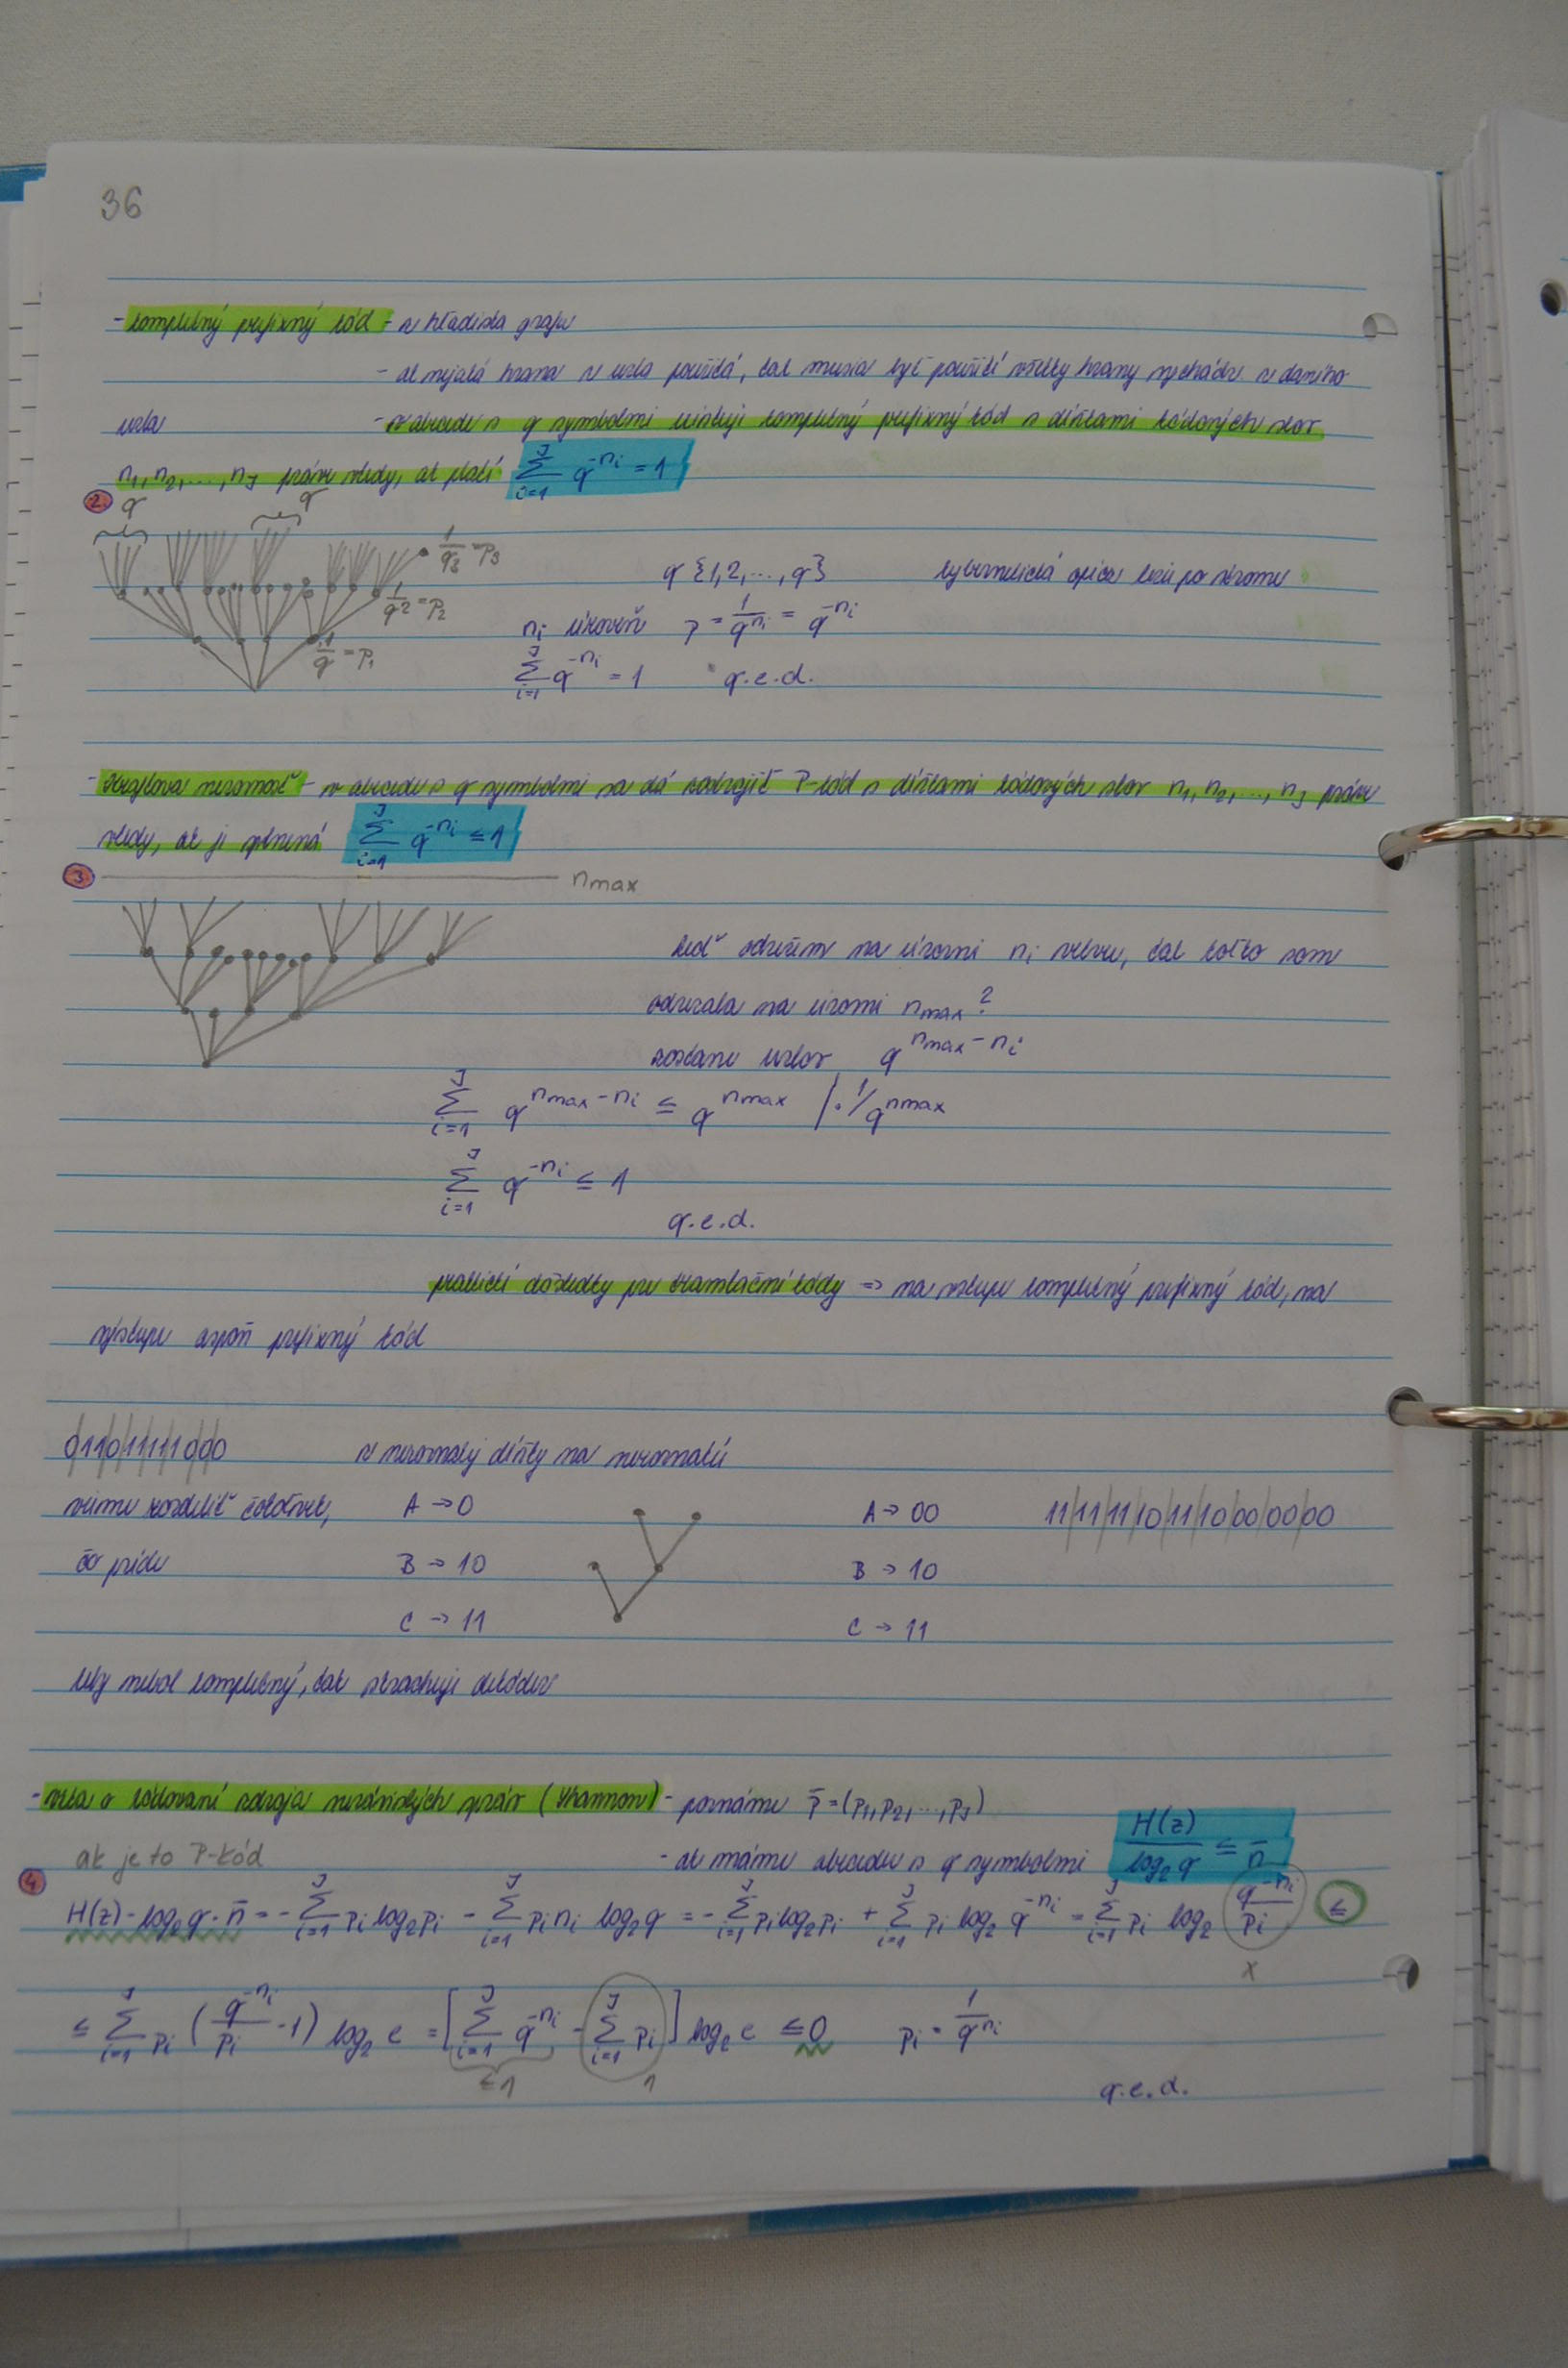 36
- kompletný prefixný kód - z hľadiska grafu
- ak nejaká hrana z uzla použitá, tak musia byť použité všetky hrany vychádz. z daného
uzla - v abecede s q symbolmi existuje kompletný prefixný kód s dĺžkami kódových slov
n₁, n₂, ..., n_J práve vtedy, ak platí ∑_{i=1}^{J} q^{-n_i} = 1
2. q q
1/q³ = P₃
q {1,2,...,q} kybernetická opica lezie po strome
1/q² = P₂
n_i úroveň p = 1/q^{n_i} = q^{-n_i}
1/q = P₁
∑_{i=1}^{J} q^{-n_i} = 1 q.e.d.
- Kraftova nerovnosť - v abecede s q symbolmi sa dá zostrojiť P-kód s dĺžkami kódových slov n₁, n₂, ..., n_J práve
vtedy, ak je splnená ∑_{i=1}^{J} q^{-n_i} ≤ 1
3. n_max
keď odrežem na úrovni n_i vetvu, tak koľko som
odrezala na úrovni n_max?
zostane uzlov q^{n_max - n_i}
∑_{i=1}^{J} q^{n_max - n_i} ≤ q^{n_max} /· 1/q^{n_max}
∑_{i=1}^{J} q^{-n_i} ≤ 1
q.e.d.
praktické dôsledky pre translačné kódy => na vstupe kompletný prefixný kód, na
výstupe aspoň prefixný kód
0/11/0/11/11/10/0/0 z nerovnakej dĺžky na nerovnakú
vieme rozdeliť čokoľvek, A → 0 A → 00 11/11/11/10/11/10/00/00/00
čo príde B → 10 B → 10
C → 11 C → 11
keby nebol kompletný, tak skrachuje dekóder
- veta o kódovaní zdroja nezávislých správ (Shannon) - poznáme p̄ = (p₁, p₂, ..., p_J)
ak je to P-kód - ak máme abecedu s q symbolmi H(z)/log₂ q ≤ n̄
4. H(z) - log₂ q · n̄ = -∑_{i=1}^{J} p_i log₂ p_i - ∑_{i=1}^{J} p_i n_i log₂ q = -∑_{i=1}^{J} p_i log₂ p_i + ∑_{i=1}^{J} p_i log₂ q^{-n_i} = ∑_{i=1}^{J} p_i log₂ q^{-n_i}/p_i ≤
x
≤ ∑_{i=1}^{J} p_i (q^{-n_i}/p_i - 1) log₂ e = [∑_{i=1}^{J} q^{-n_i} - ∑_{i=1}^{J} p_i] log₂ e ≤ 0 p_i = 1/q^{n_i}
≤1 1
q.e.d.